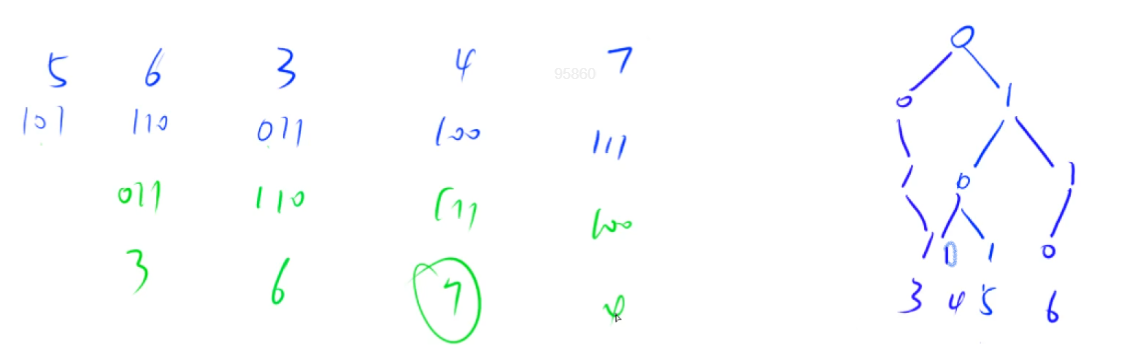 5 6 3 4 7
95860
101 110 011 100 111
011 110 111 100
3 6 7 4
0
0 1
1 0 1
1 0 1 0
3 4 5 6